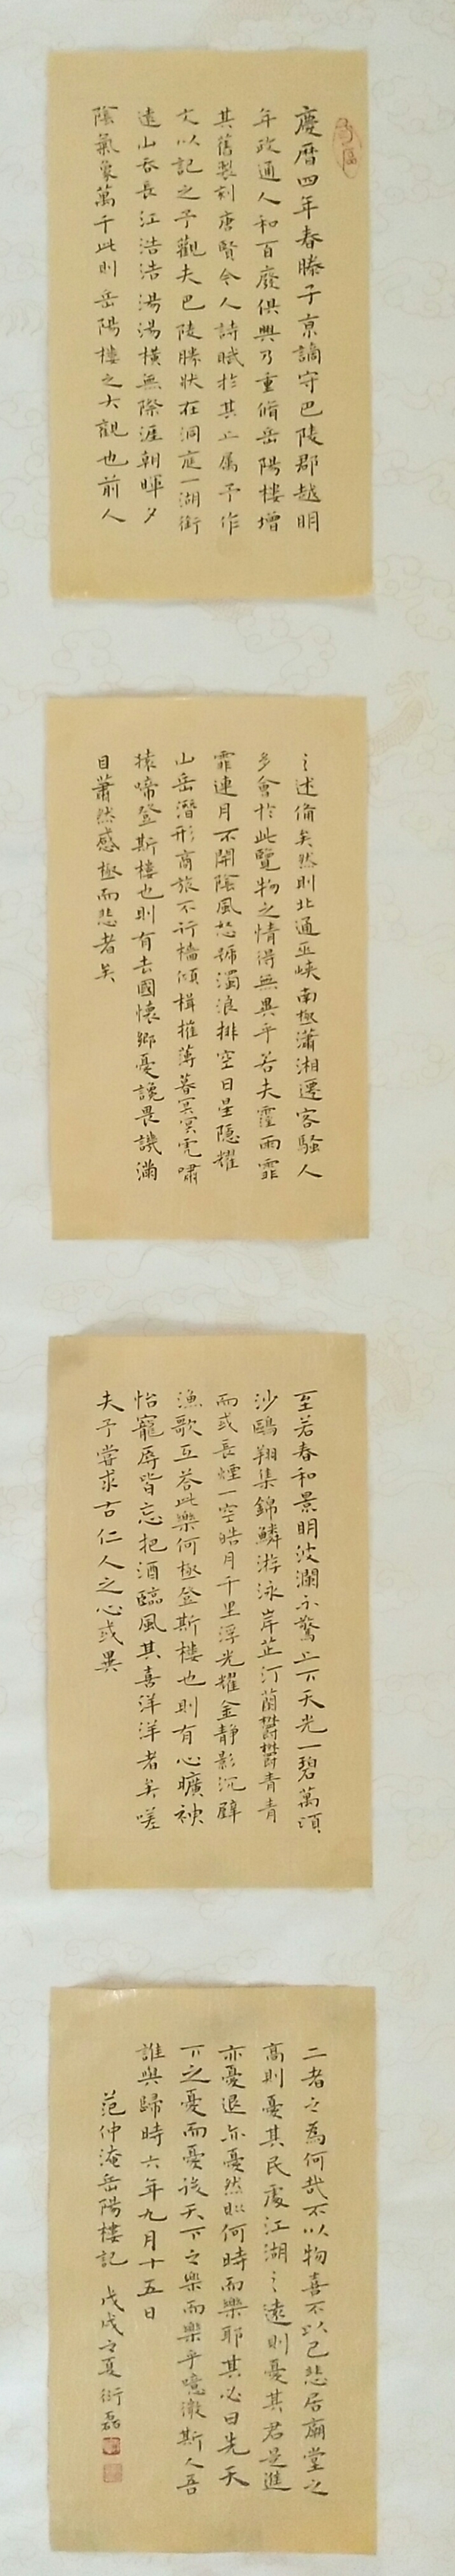 慶曆四年春滕子京謫守巴陵郡越明
年政通人和百廢俱興乃重脩岳陽樓增
其舊製刻唐賢今人詩賦於其上属予作
文以記之予觀夫巴陵勝狀在洞庭一湖銜
遠山吞長江浩浩湯湯橫無際涯朝暉夕
陰氣象萬千此則岳陽樓之大觀也前人
之述俻矣然則北通巫峽南極瀟湘遷客騷人
多會於此覽物之情得無異乎若夫霪雨霏
霏連月不開陰風怒號濁浪排空日星隱耀
山岳潛形商旅不行檣傾楫摧薄暮冥冥虎嘯
猿啼登斯樓也則有去國懷鄉憂讒畏譏滿
目蕭然感極而悲者矣
至若春和景明波瀾不驚上下天光一碧萬頃
沙鷗翔集錦鱗游泳岸芷汀蘭鬱鬱青青
而或長煙一空皓月千里浮光耀金靜影沉璧
漁歌互荅此樂何極登斯樓也則有心曠神
怡寵辱皆忘把酒臨風其喜洋洋者矣嗟
夫予嘗求古仁人之心或異
二者之為何哉不以物喜不以己悲居廟堂之
高則憂其民處江湖之遠則憂其君是進
亦憂退亦憂然則何時而樂耶其必曰先天
下之憂而憂後天下之樂而樂乎噫微斯人吾
誰與歸時六年九月十五日
范仲淹岳陽樓記 戊戌之夏 衍磊